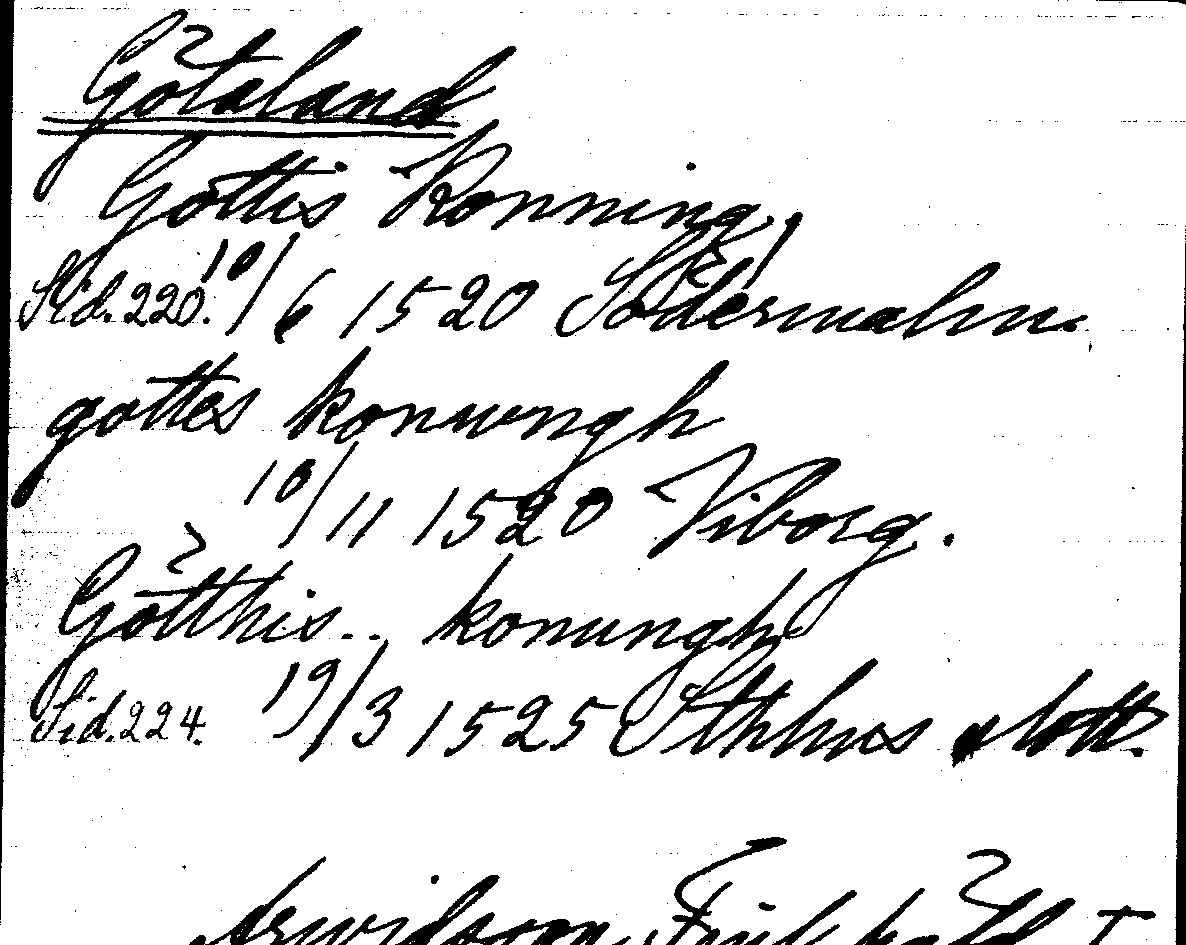 Götaland
Gottis Konning,
Sid. 220. 10/6 1520 Södermalm.
gottes konungh
10/11 1520 Viborg.
Götthis.. konungh
Sid. 224. 19/3 1525 Sthlms slott.
Arwidsson,